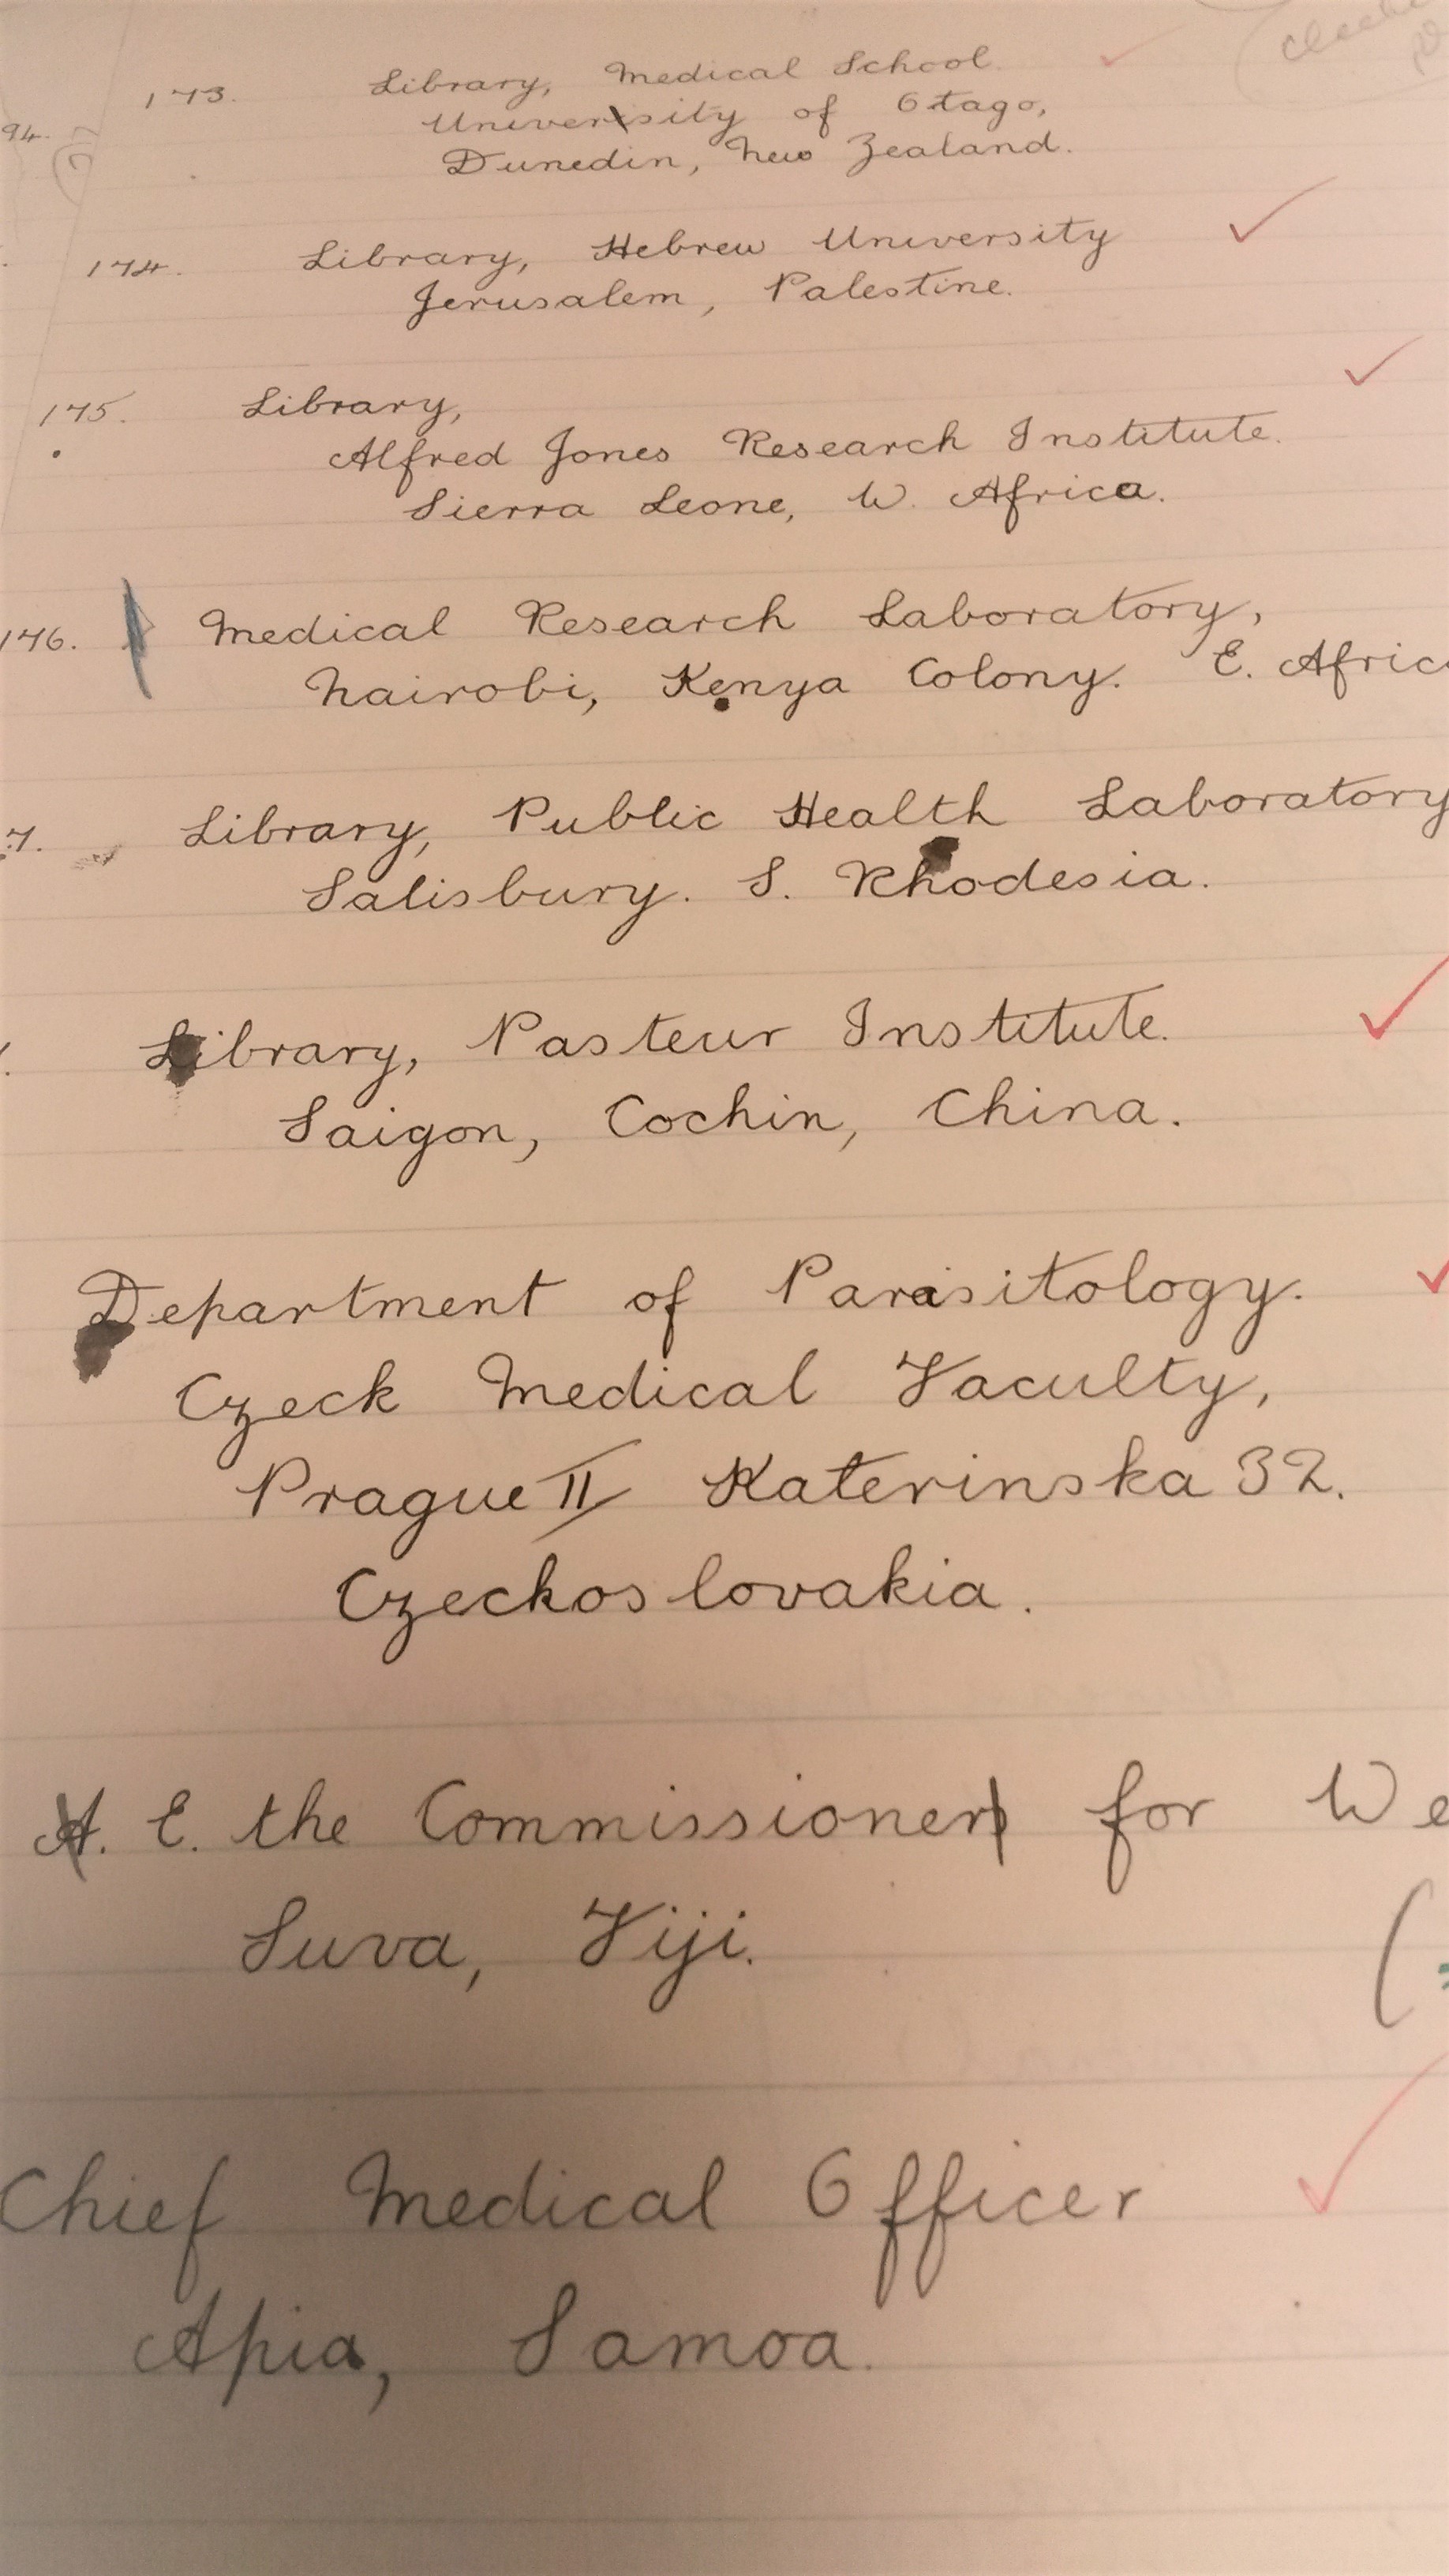 173. Library, Medical School.
University of Otago,
94.
Dunedin, New Zealand.
174. Library, Hebrew University
Jerusalem, Palestine.
175. Library,
Alfred Jones Research Institute.
Sierra Leone, W. Africa.
176. Medical Research Laboratory,
Nairobi, Kenya Colony. E. Afric
7. Library, Public Health Laboratory
Salisbury. S. Rhodesia.
Library, Pasteur Institute.
Saigon, Cochin, China.
Department of Parasitology.
Czeck Medical Faculty,
Prague II Katerinska 32.
Czechoslovakia.
E. the Commissioner for We
Suva, Fiji.
Chief Medical Officer
Apia, Samoa.